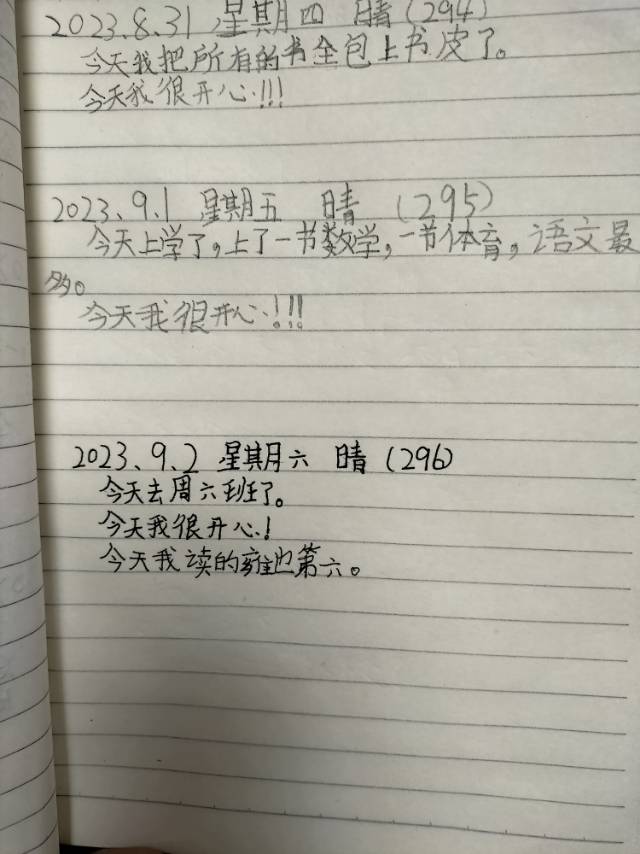 2023.8.31 星期四 晴(294)
今天我把所有的书全包上书皮了。
今天我很开心!!!
2023、9.1 星期五 晴 (295)
今天上学了,上了一节数学,一节体育,语文最
多。
今天我很开心!!!
2023、9.2 星期六 晴(296)
今天去周六班了。
今天我很开心!
今天我读的雍也第六。